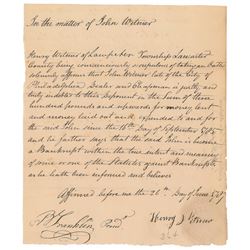 In the matter of John Witmer
Henry Witmer of Lampeter Township Lancaster
County being conscientiously scrupulous of taking an Oath
solemnly affirms that John Witmer late of the City of
Philadelphia Dealer and Chapman is justly and
truly indebted to this Deponent in the Sum of three
hundred pounds and upwards for money lent
and money laid out and expended to and for
the said John since the 16th Day of September
and he further says that the said John is become
a Bankrupt within the true intent and meaning
of some or one of the Statutes against Bankrupts
as he hath been informed and believes
Affirmed before me the 26th Day of June
B Franklin, Presid
Henry Witmer